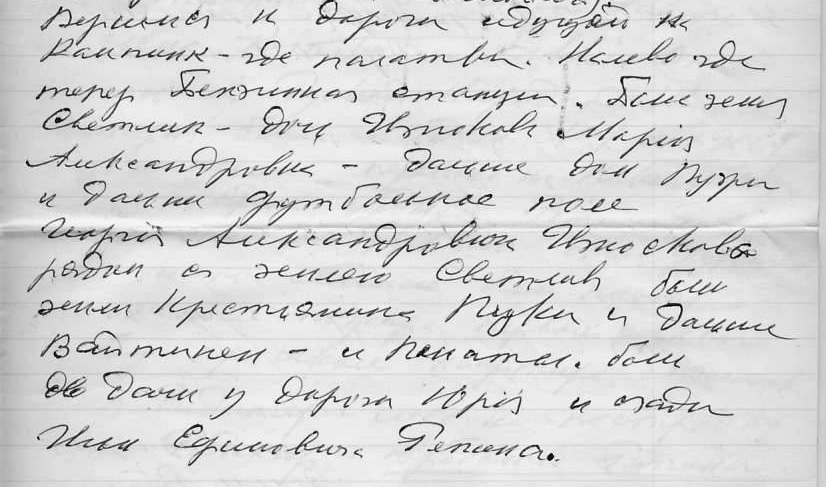 к дороги идущей на
Кампинк - где палатки. Налево где
теперь Бензинная станция. Были земли
Светлик - дом Ижоскова Мария
Александровна - дальше дом Пурри
и дальше футбольное поле
Георгия Александровича Ижоскова
рядом с землею Светлик были
земли Крестьянина Пуки и дальше
Вайтинен - и Пенаты. были
две дачи у дороги Юрия и сзади
Ильи Ефимовича Репина.